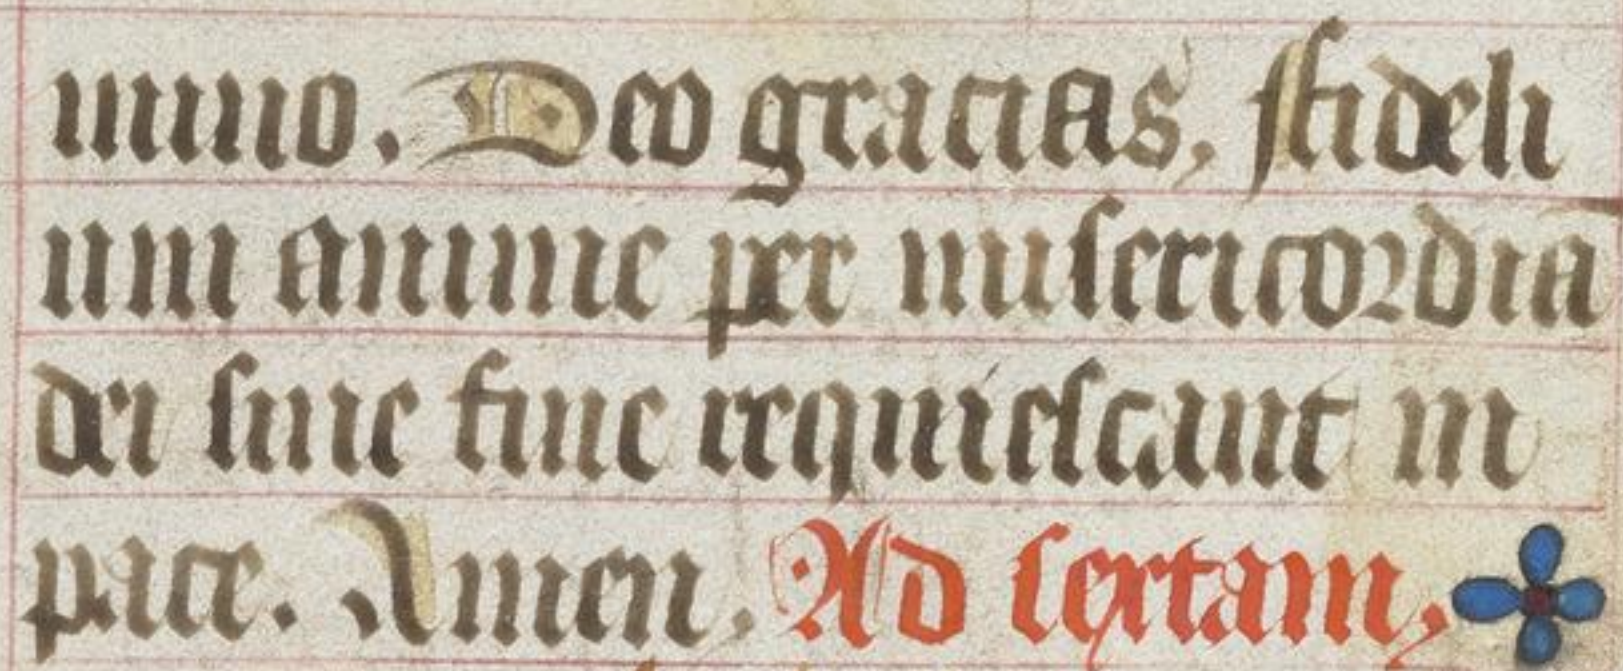 mino. Deo gracias. ffideli
um anime per misericordiā
dei sine fine requiescant in
pace. Amen. Ad sextam.